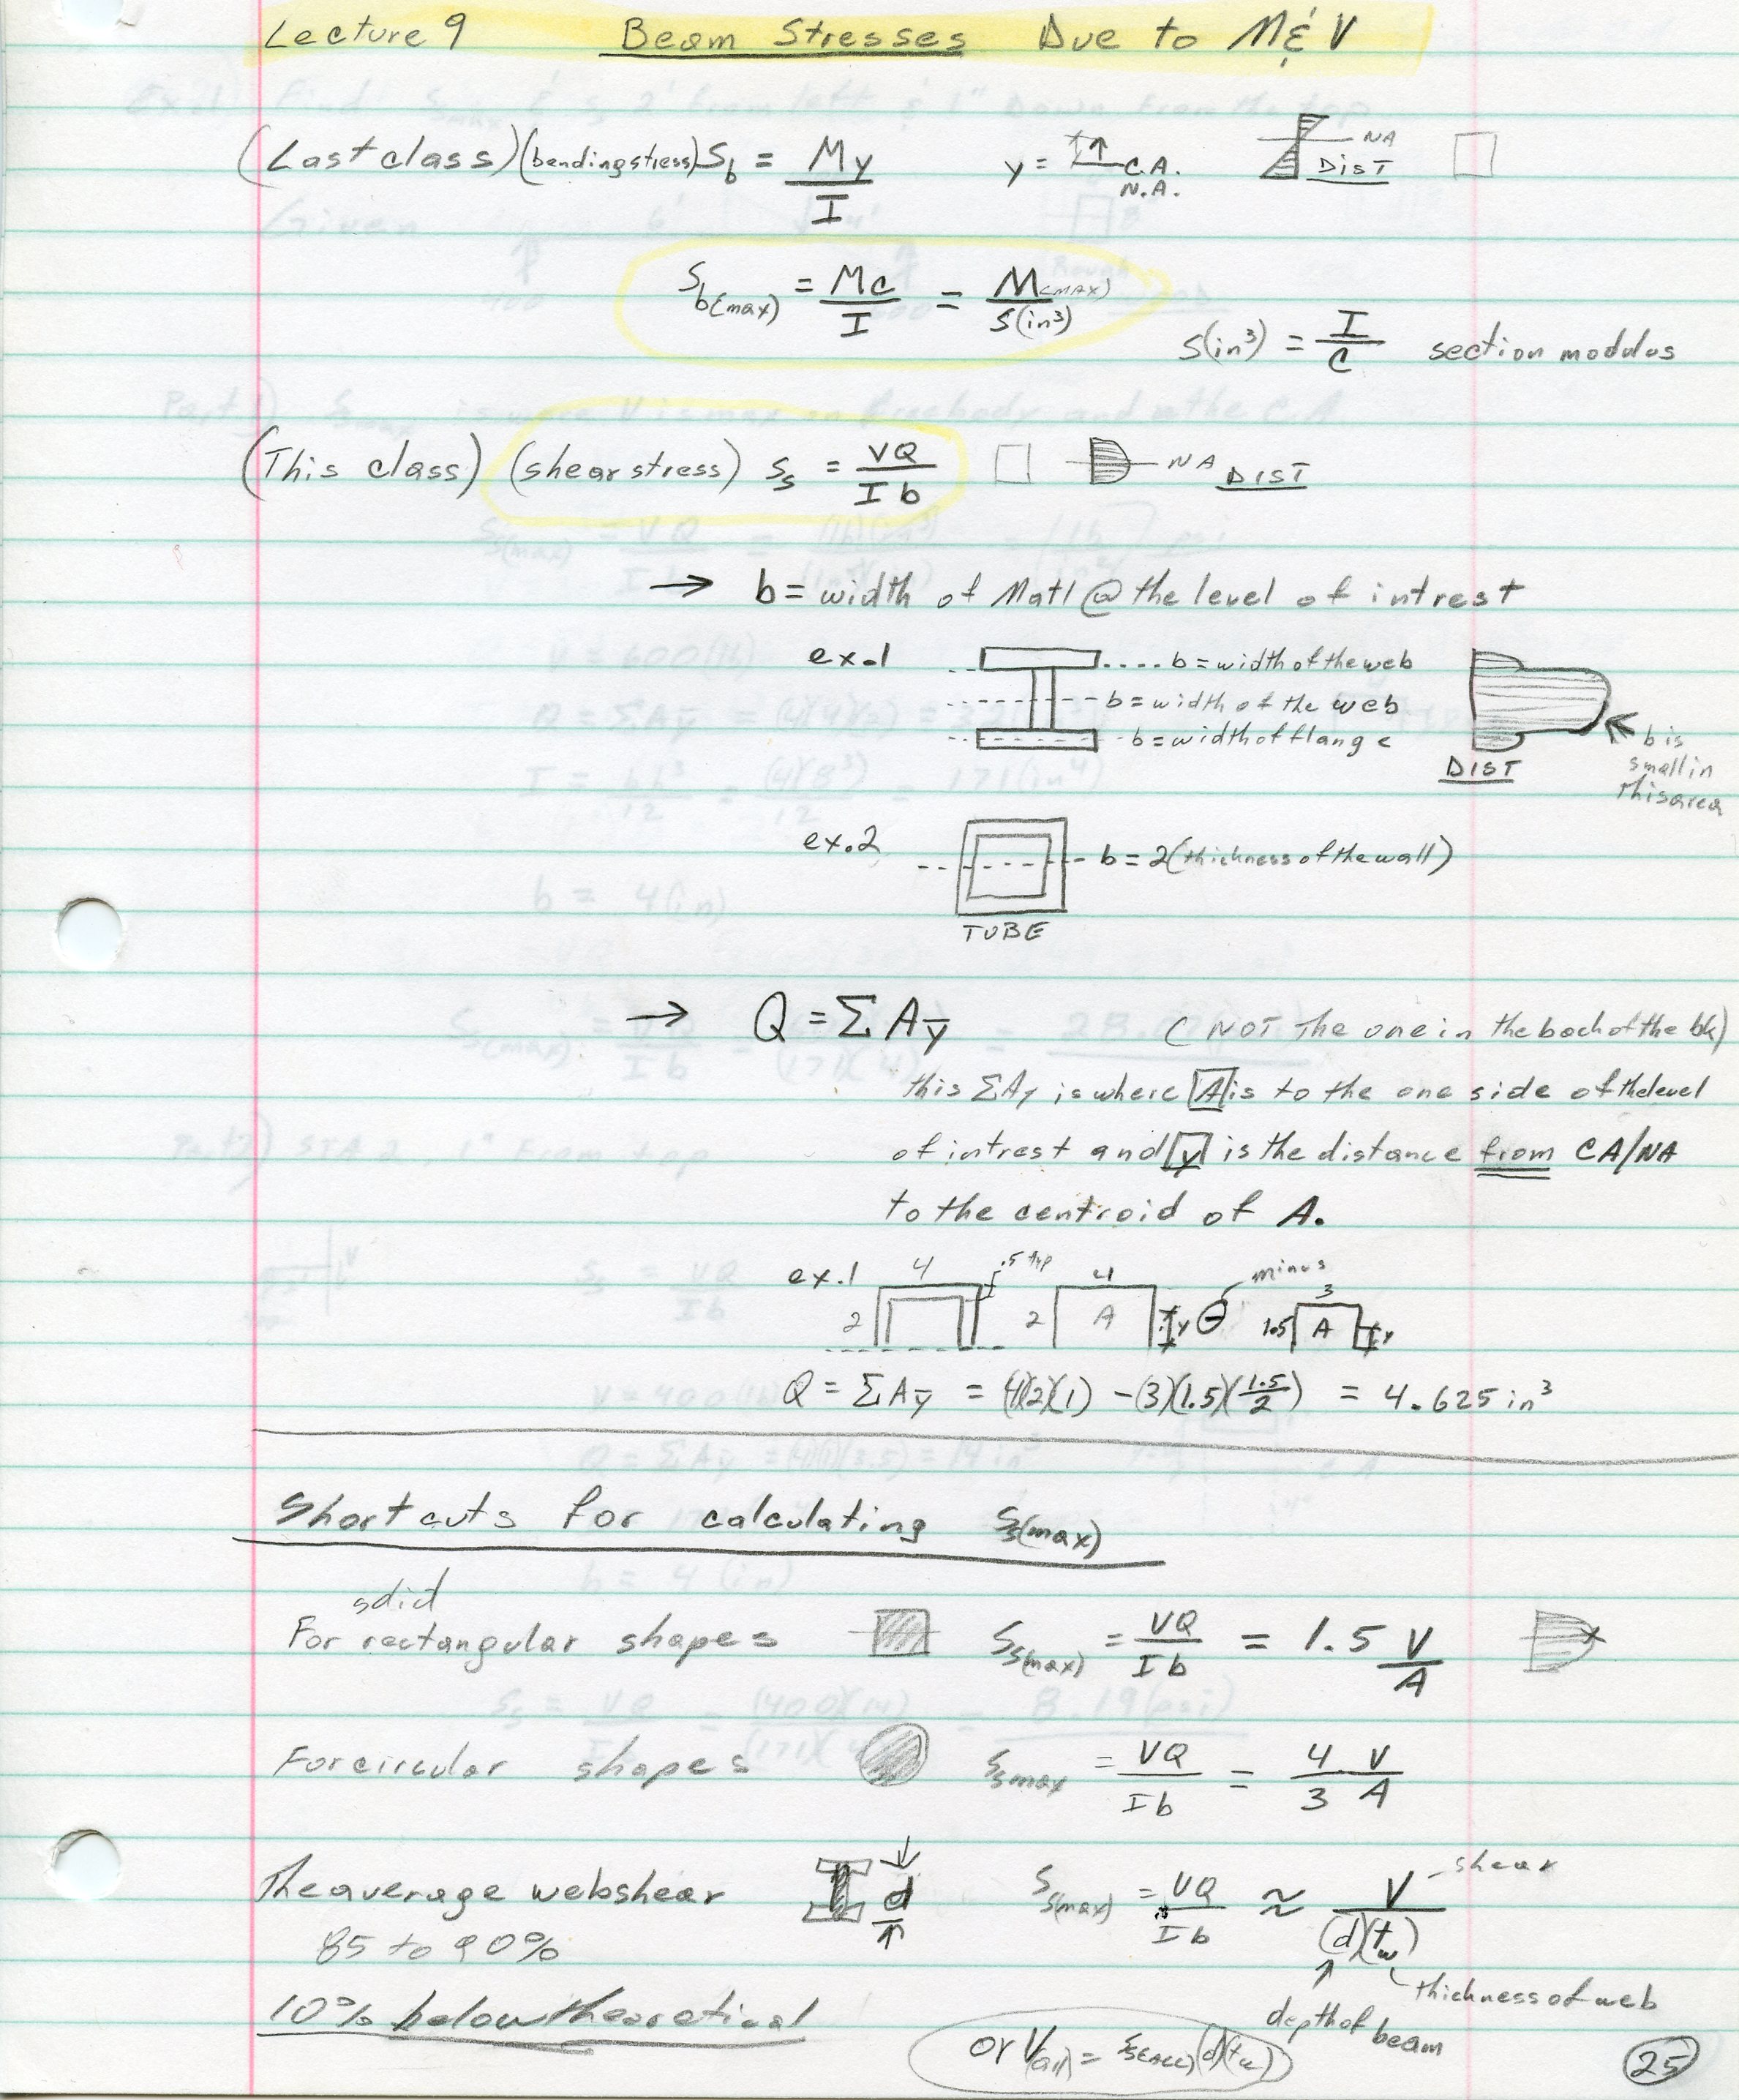 Lecture 9 Beam Stresses Due to M & V
(Last class) (bending stress) Sb = My / I y = C.A. N.A. NA DIST
Sb(max) = Mc / I = M(MAX) / S(in³)
S(in³) = I / C section modulus
(This class) (shear stress) Ss = VQ / Ib NA DIST
→ b = width of Matl @ the level of intrest
ex.1 b = width of the web
b = width of the web
b = width of flange
DIST
b is
small in
this area
ex.2 b = 2(thickness of the wall)
TUBE
→ Q = ΣAȳ (NOT The one in the back of the bk)
this ΣAy is where A is to the one side of the level
of intrest and y is the distance from CA/NA
to the centroid of A.
ex.1 4 .5 typ 2 4 2 A y minus 3 1.5 A y
Q = ΣAȳ = (4)(2)(1) - (3)(1.5)(1.5/2) = 4.625 in³
Shortcuts for calculating Ss(max)
solid
For rectangular shapes Ss(max) = VQ / Ib = 1.5 V / A
For circular shapes Ssmax = VQ / Ib = 4 / 3 V / A
The average webshear d Ss(max) = VQ / Ib ≈ V / (d)(tw) shear
85 to 90%
thickness of web
10% below theoretical
depth of beam
or V(all) = Ss(ALL)(d)(tw)
25